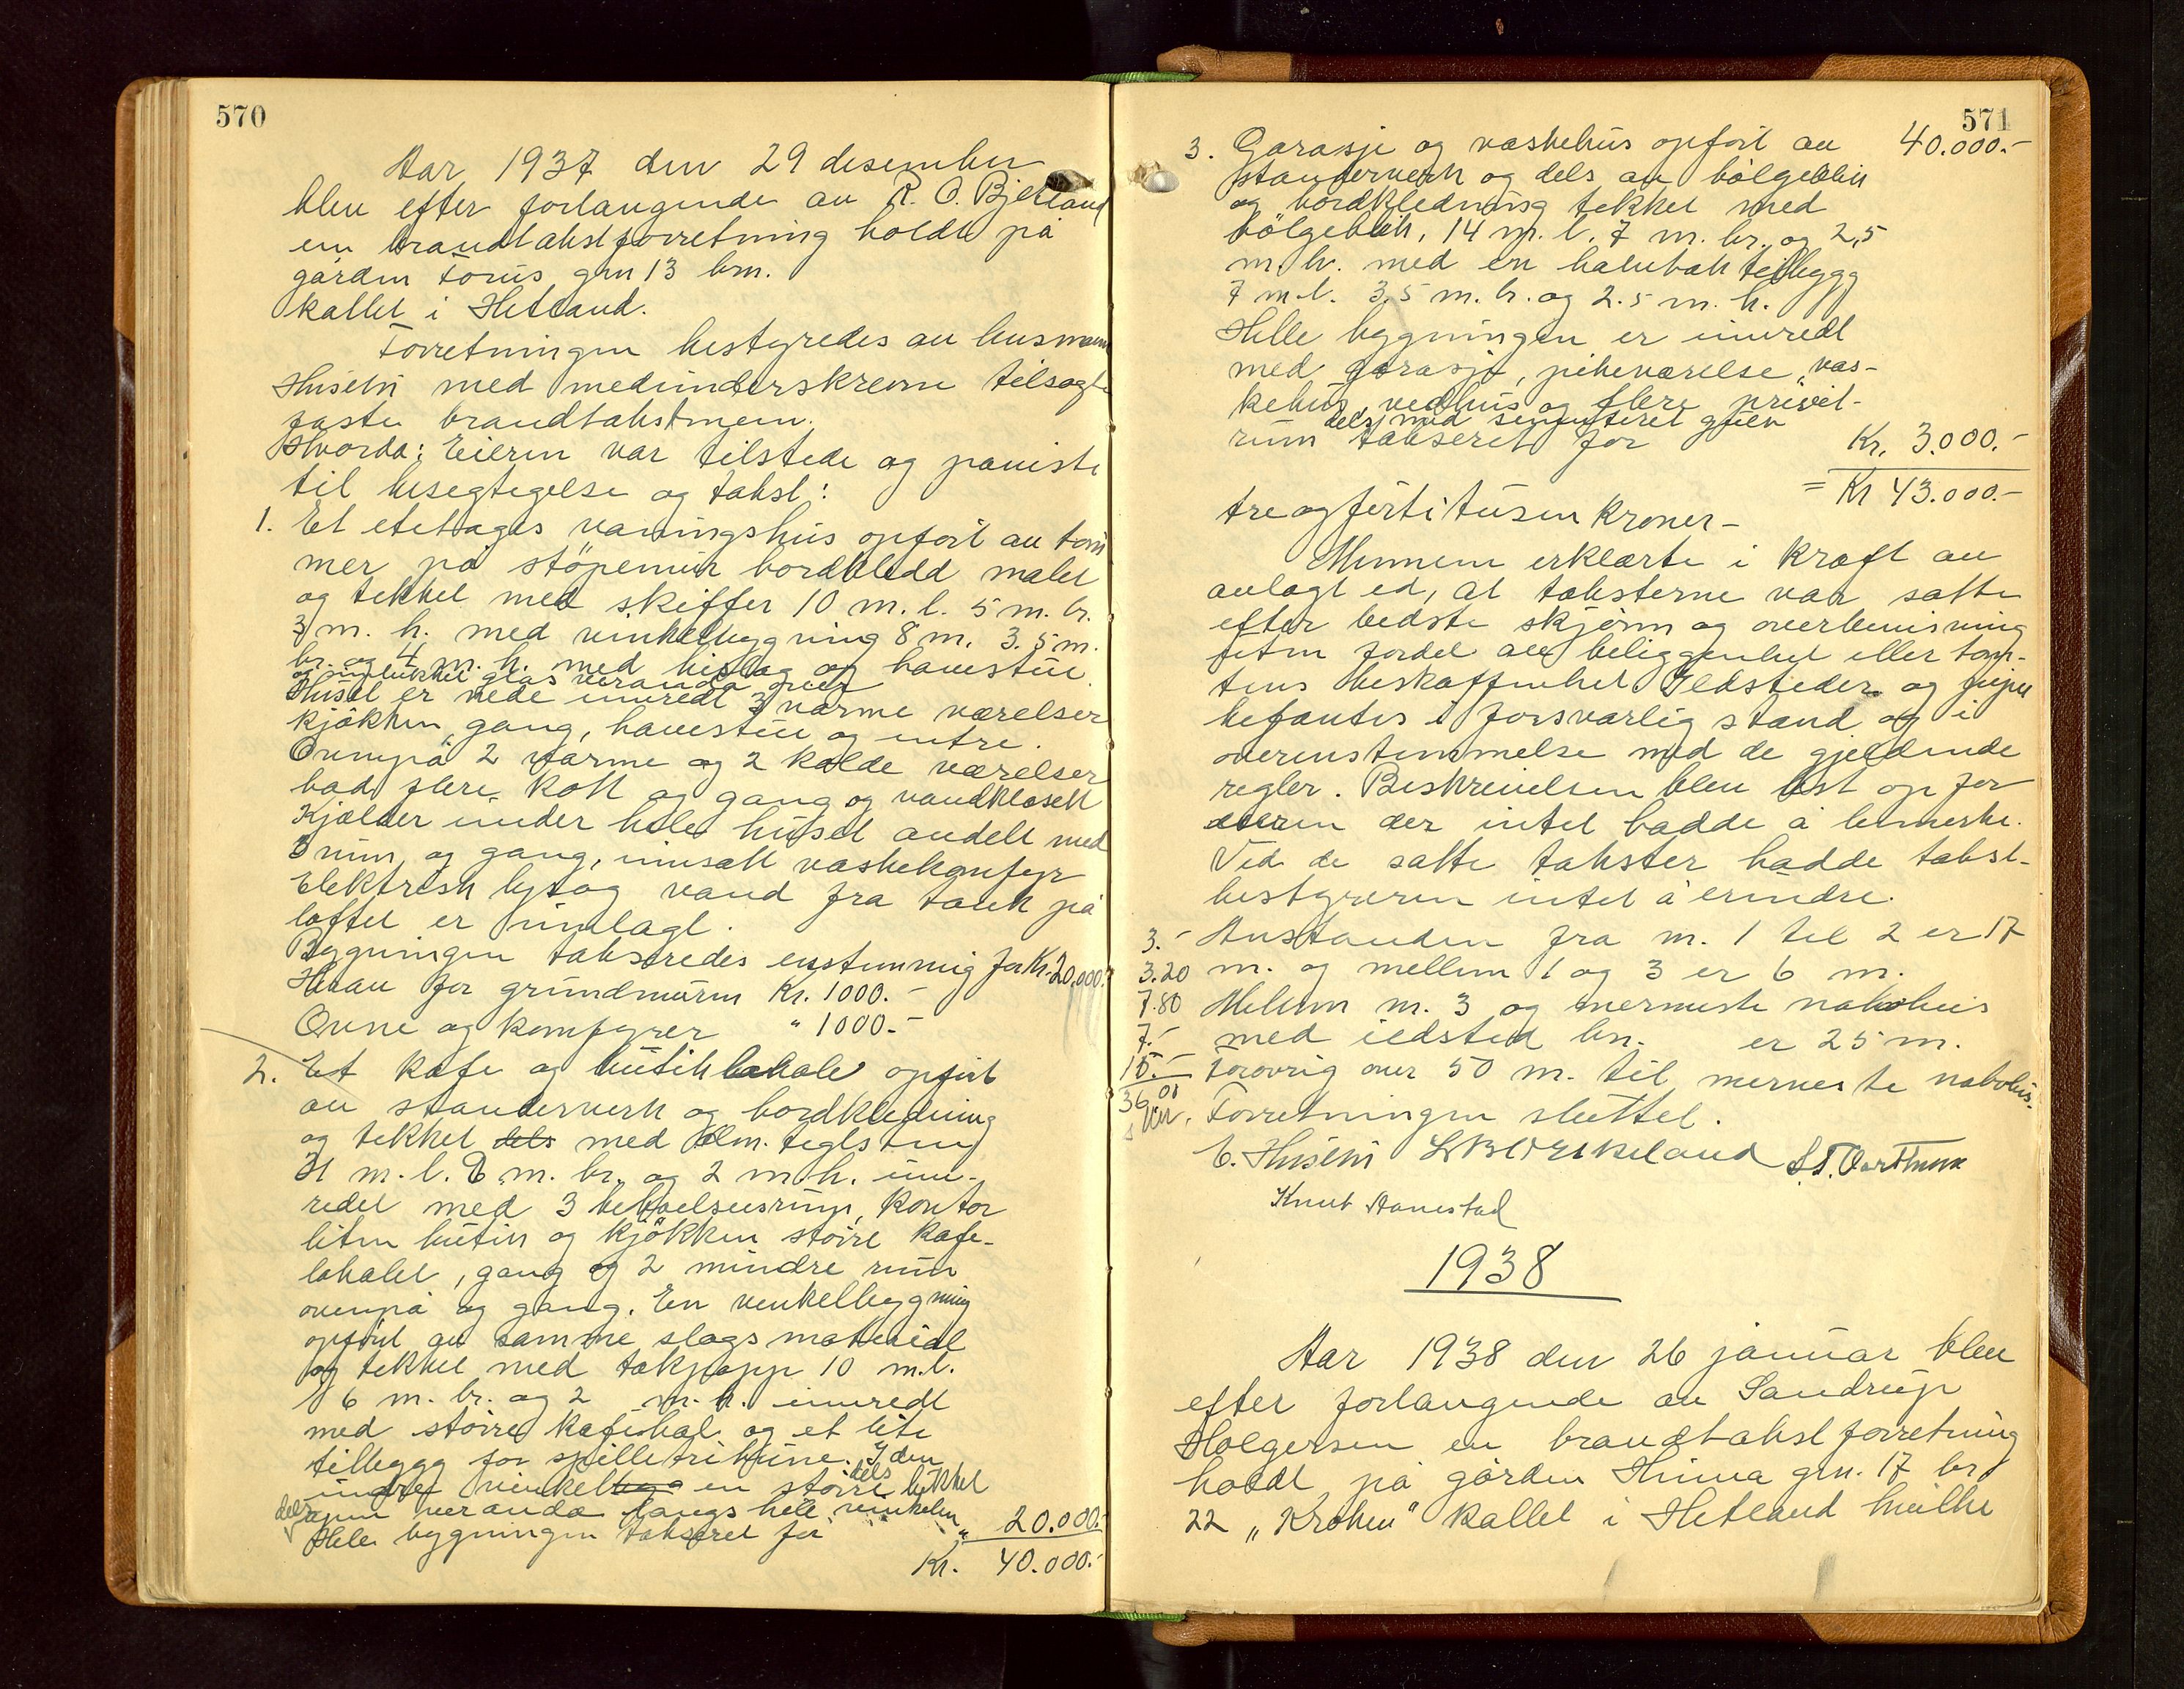 570
Aar 1937 den 29 desember
blev efter forlangende av R. O. Bjelland
en brandtakstforretning holdt på
gården Forus grn 13 brn.
kallet i Hetland.
Forretningen bestyredes av lensmann
Husebø med medunderskrevne tilsagte
faste brandtakstmenn.
Hvorda: Eieren var tilstede og paaviste
til besegtegelse og takst:
1. Et etetages vaningshus opført av tøm
mer på støpemur bordkledd malet
og tekket med skiffer 10 m. l. 5 m. br.
3 m. h. med vinkelbygning 8 m. 3.5 m.
br. og 4 m. h. med bislag og havestue
og glas veranda
Huset er nede innredt 3 varme værelser
kjøkken, gang, havestue og entre.
Ovenpå 2 varme og 2 kalde værelser
bad flere kott og gang og vandklosett
Kjælder under hele huset avdelt med
3 rum og gang, innsatt vaskekomfyr
Elektrisk lys og vand fra tank på
loftet er innlagt.
Bygningen takseredes enstemmig for Kr. 20,000.-
Herav for grundmuren Kr. 1000.-
Ovne og komfyrer " 1000.-
2. Et kafe og butik lokale opført
av standerverk og bordkledning
og tekket dels med alm. teglsten
21 m. l. 8 m. br. og 2 m. h. inn-
redet med 3 beboelsesrum, kontor
liten butik og kjøkken større kafe-
lokalet, gang og 2 mindre rum
ovenpå og gang. En venkelbygning
opført av samme slags material
og tekket med takpapp 10 m. l.
6 m. br. og 2 m. h. innredt
med større kafehal og et lite
tilbygg for spilletribune. I den
indre vinkel en større dels lukket
dels åpen veranda langs hele vinkelen
Hele bygningen taksert for " 20.000.-
Kr. 40.000.-
571
40.000.-
3. Garasje og vaskehus opført av
standerverk og dels av bølgeblik
og bordkledning tekket med
bølgeblik, 14 m. l. 7 m. br. og 2,5
m. h. med en halvtak tilbygg
7 m. l. 3,5 m. br. og 2.5 m. h.
Hele bygningen er innredt
med garasje, pikeværelse, vas-
kehus, vedhus og flere privet-
dels med sementeret gulv
rum taksert for Kr. 3.000.-
= Kr 43.000.-
tre og førti tusen kroner-
Mennene erklærte i kraft av
avlagt ed, at taksterne var satte
efter bedste skjønn og overbevisning
uten fordel av beliggenhet eller tom-
tens beskaffenhet Ildsteder og piper
befantes i forsvarlig stand og i
overenstemmelse med de gjeldende
regler. Beskrivelsen blev lest op for
eieren der intet hadde å bemerke.
Ved de satte takster hadde takst-
bestyreren intet å erindre.
3.- Avstanden fra m. 1 til 2 er 17
3.20 m. og mellem 1 og 3 er 6 m.
7.80 Mellem m. 3 og nermeste nabohus
7.- med ildsted bn. er 25 m.
15.- Forøvrig over 50 m. til nermeste nabohus.
36.00 Forretningen sluttet.
E. Husebø
Knut Hanestad
1938
Aar 1938 den 26 januar blev
efter forlangende av Sandrup
Holgersen en brandtakst forretning
holdt på gården Hinna grn. 17 br
22 "Kroken" kallet i Hetland hvilke